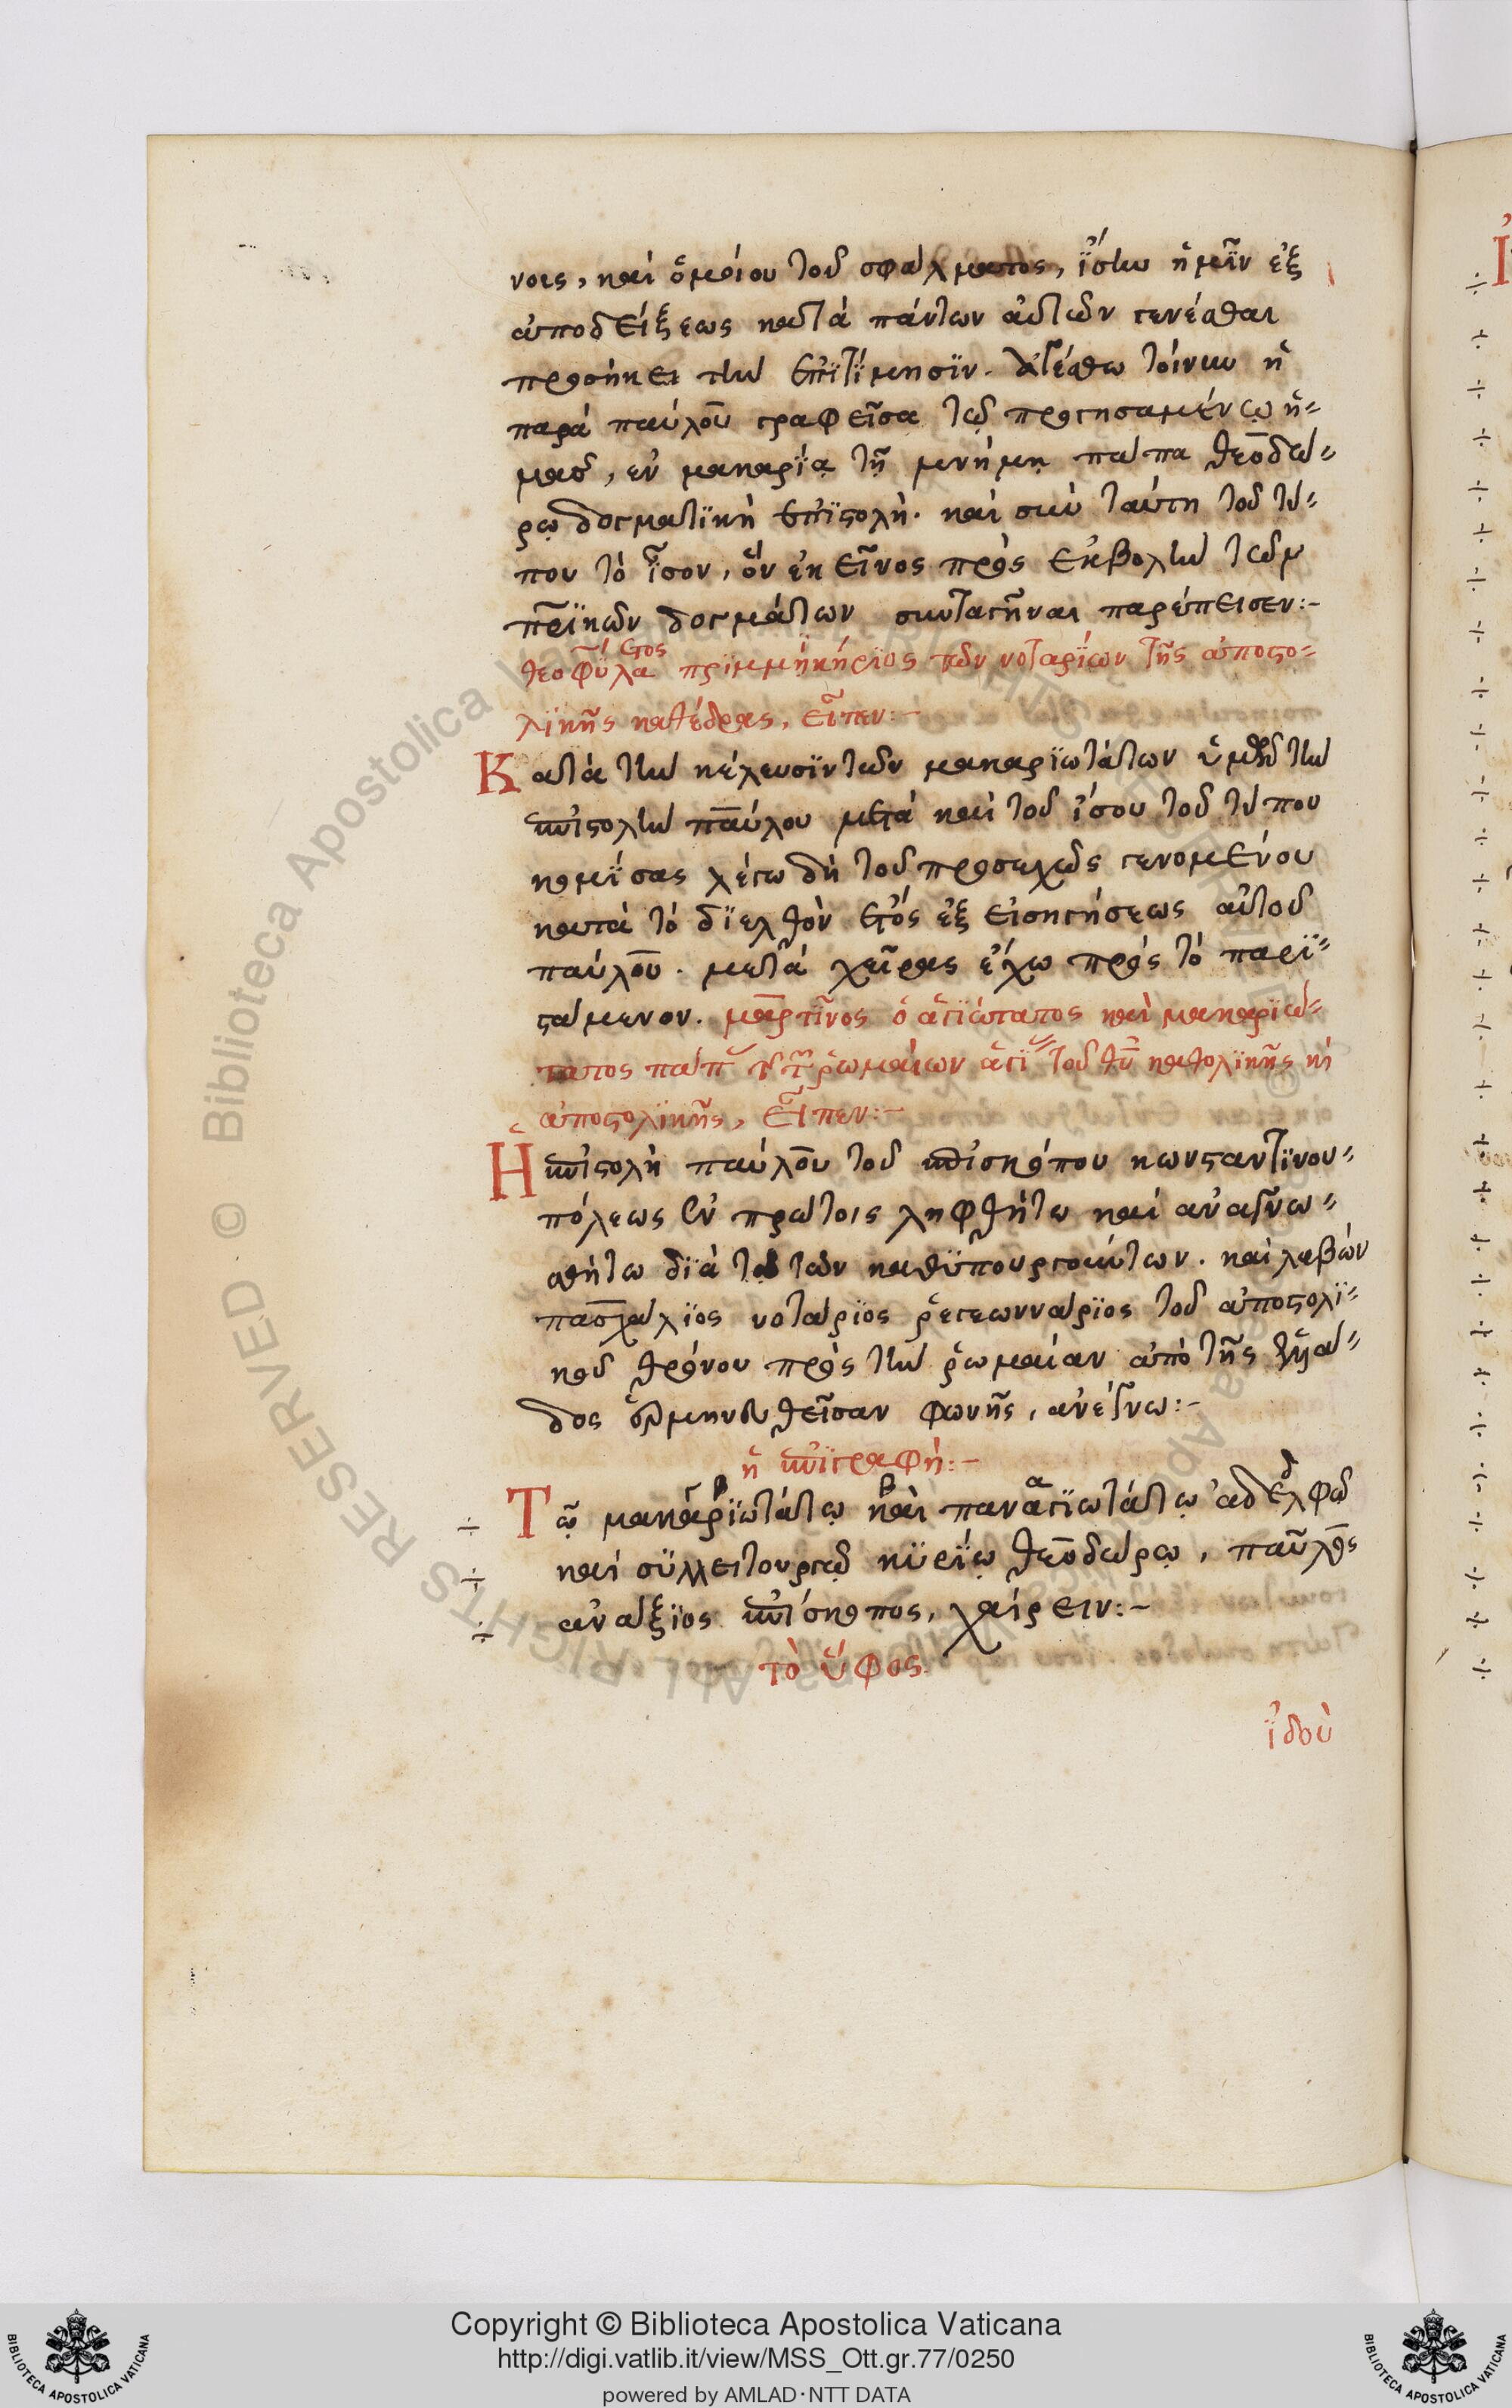 νοις, καὶ ὁμοίου τοῦ σφάλματος, ἴσην ἡμῖν ἐξ
ἀποδείξεως κατὰ πάντων αὐτῶν γενέσθαι
προσήκει τὴν ἐπιτίμησιν. αἰτείσθω τοίνυν ἡ
παρὰ παύλου γραφεῖσα τῷ προηγησαμένῳ ἡ-
μᾶς, ἐν μακαρίᾳ τῇ μνήμῃ πάπα θεοδώ-
ρῳ δογματικὴ ἐπιστολή. καὶ σὺν ταύτῃ τοῦ τύ-
που τὸ ἶσον, ὃν ἐκεῖνος πρὸς ἐκβολὴν τῶν
πρϊκῶν δογμάτων συνταγῆναι παρέπεισεν:-
θεοφύλακτος πριμμηκήριος τῶν νοταρίων τῆς ἀποστο-
λικῆς καθέδρας, εἶπεν:-
Κατὰ τὴν κέλευσιν τῶν μακαριωτάτων ὑμῶν τὴν
ἐπιστολὴν παύλου μετὰ καὶ τοῦ ἴσου τοῦ τύπου
κομίσας λέγω δὴ τοῦ προσεχῶς γενομένου
κατὰ τὸ διελθὸν ἔτος ἐξ εἰσηγήσεως αὐτοῦ
παύλου. μετὰ χεῖρας ἔχω πρὸς τὸ παρι-
στάμενον. μαρτῖνος ὁ ἁγιώτατος καὶ μακαριώ-
τατος πάπ τῆς τῶν ῥωμαίων ἁγί τοῦ θυ καθολικῆς κὶ
ἀποστολικῆς, εἶπεν:-
Ἡ ἐπιστολὴ παύλου τοῦ ἐπισκόπου κωνσταντινου-
πόλεως ἐν πρώτοις ληφθήτω καὶ ἀναγνω-
σθήτω διὰ τῶν καθυπουργούντων. καὶ λαβὼν
πασχάλιος νοτάριος ῥεγεωννάριος τοῦ ἀποστολι-
κοῦ θρόνου πρὸς τὴν ῥωμαίαν ἀπὸ τῆς ἑλλάδ-
δος ἑρμηνευθεῖσαν φωνῆς, ἀνέγνω:-
ἡ ἐπιγραφή:-
Τῷ μακαριωτάτῳ καὶ παναγιωτάτῳ ἀδελφῷ
καὶ συλλειτουργῷ κυρίῳ θεοδώρῳ, παῦλος
ἀνάξιος ἐπίσκοπος, χαίρειν:-
τὸ ὕφος
ἰδοὺ
Copyright © Biblioteca Apostolica Vaticana
http://digi.vatlib.it/view/MSS_Ott.gr.77/0250
powered by AMLAD·NTT DATA